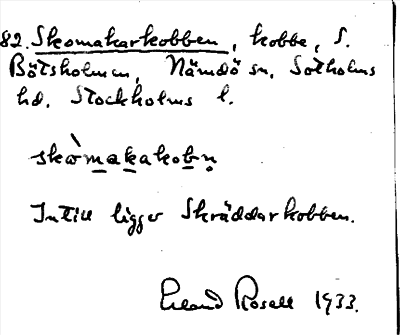 82. Skomakarkobben, kobbe, S.
Bötsholmen, Nämdö sn, Sotholms
hd. Stockholms l.
skòmakakobn̥
Intill ligger Skräddarkobben.
Erland Rosell 1933.